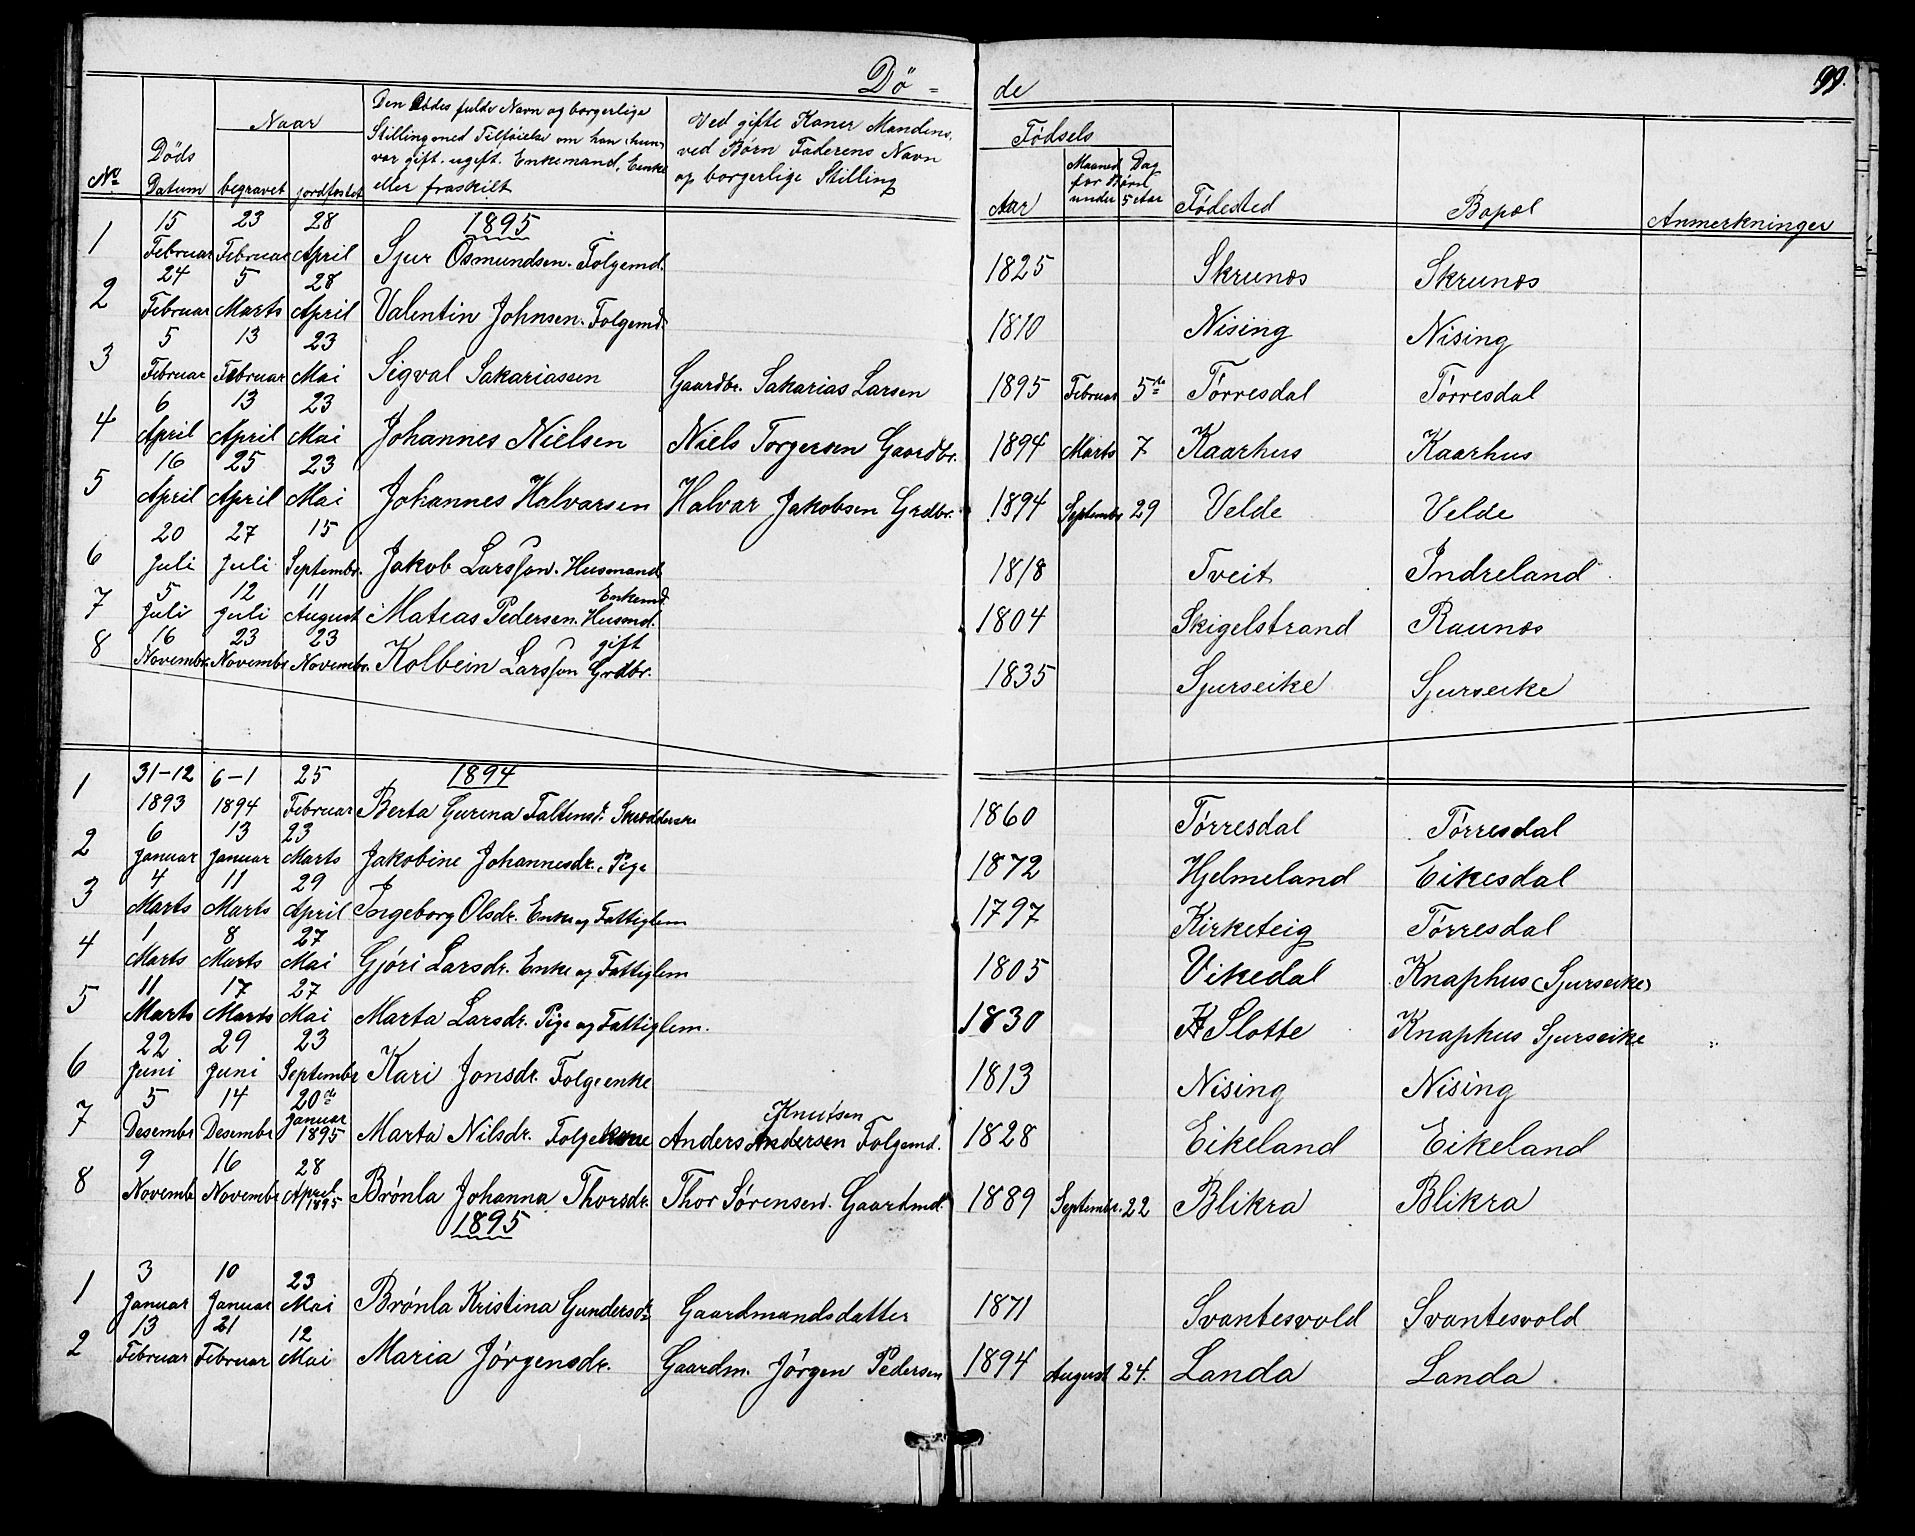 Dö - de 99.
No Döds Datum Naar begravet jordfæstet Den Dødes fulde Navn og borgerlige Stilling med Tilføielse om han (hun) var gift. ugift. Enkemand, Eenke eller fraskilt Ved gifte Koner Mandens, ved Børn Faderens Navn og borgerlige Stilling Fødsels Aar Maaned Dag for Børn under 5 Aar Fødested Bopæl Anmerkninger
1895
1 15 Februar 23 Februar 28 April Sjur Osmundsen. Folgemd. 1825 Skrunæs Skrunæs
2 24 Februar 5 Marts 28 April Valentin Johnsen. Folgemd. 1810 Nising Nising
3 5 Februar 13 Februar 23 Mai Sigval Sakariassen Gaardbr. Sakarias Larsen 1895 Februar 5te Tørresdal Tørresdal
4 6 April 13 April 23 Mai Johannes Nielsen Niels Torgersen Gaardbr. 1894 Marts 7 Kaarhus Kaarhus
5 16 April 25 April 23 Mai Johannes Halvarsen Halvar Jakobsen Grdbr. 1894 Septembr 29 Velde Velde
6 20 Juli 27 Juli 15 Septembr. Jakob Larsson. Husmand 1818 Tveit Indreland
7 5 Juli 12 Juli 11 August Matias Pedersen. Husmd. Enkemd. 1804 Skigelstrand Raunæs
8 16 Novembr. 23 Novembr 23 Novembr. Kolbein Larsson Grdbr. gift 1835 Sjurseike Sjurseike
1894
1 31-12 1893 6-1 1894 25 Februar Berta Gurina Faltensdr. 1860 Tørresdal Tørresdal
2 6 Januar 13 Januar 23 Marts Jakobine Johannesdr. Pige 1872 Hjelmeland Eikesdal
3 4 Marts 11 Marts 29 April Ingeborg Olsdr. Enke og Fattiglem 1797 Kirketeig Tørresdal
4 1 Marts 8 Marts 27 Mai Gjøri Larsdr. Enke og Fattiglem 1805 Vikedal Knaphus (Sjurseike)
5 11 Marts 17 Marts 27 Mai Marta Larsdr. Pige og Fattiglem. 1830 Slotte Knaphus Sjurseike
6 22 Juni 29 Juni 23 Septembr Kari Jonsdr. Folgeenke 1813 Nising Nising
7 5 Desembr 14 Desembr 20de Januar 1895 Marta Nilsdr. Folgekone Anders Andersen Knutsen Folgemd. 1828 Eikeland Eikeland
8 9 Novembr 16 Novembr 28 April 1895 Brønla Johanna Thorsdr. Thor Sørensen. Gaardmd. 1889 Septembr. 22 Blikra Blikra
1895
1 3 Januar 10 Januar 23 Mai Brønla Kristina Gundersdr Gaardmandsdatter 1871 Svantesvold Svantesvold
2 13 Februar 21 Februar 12 Mai Maria Jørgensdr. Gaardm. Jørgen Pedersen 1894 August 24. Landa Landa